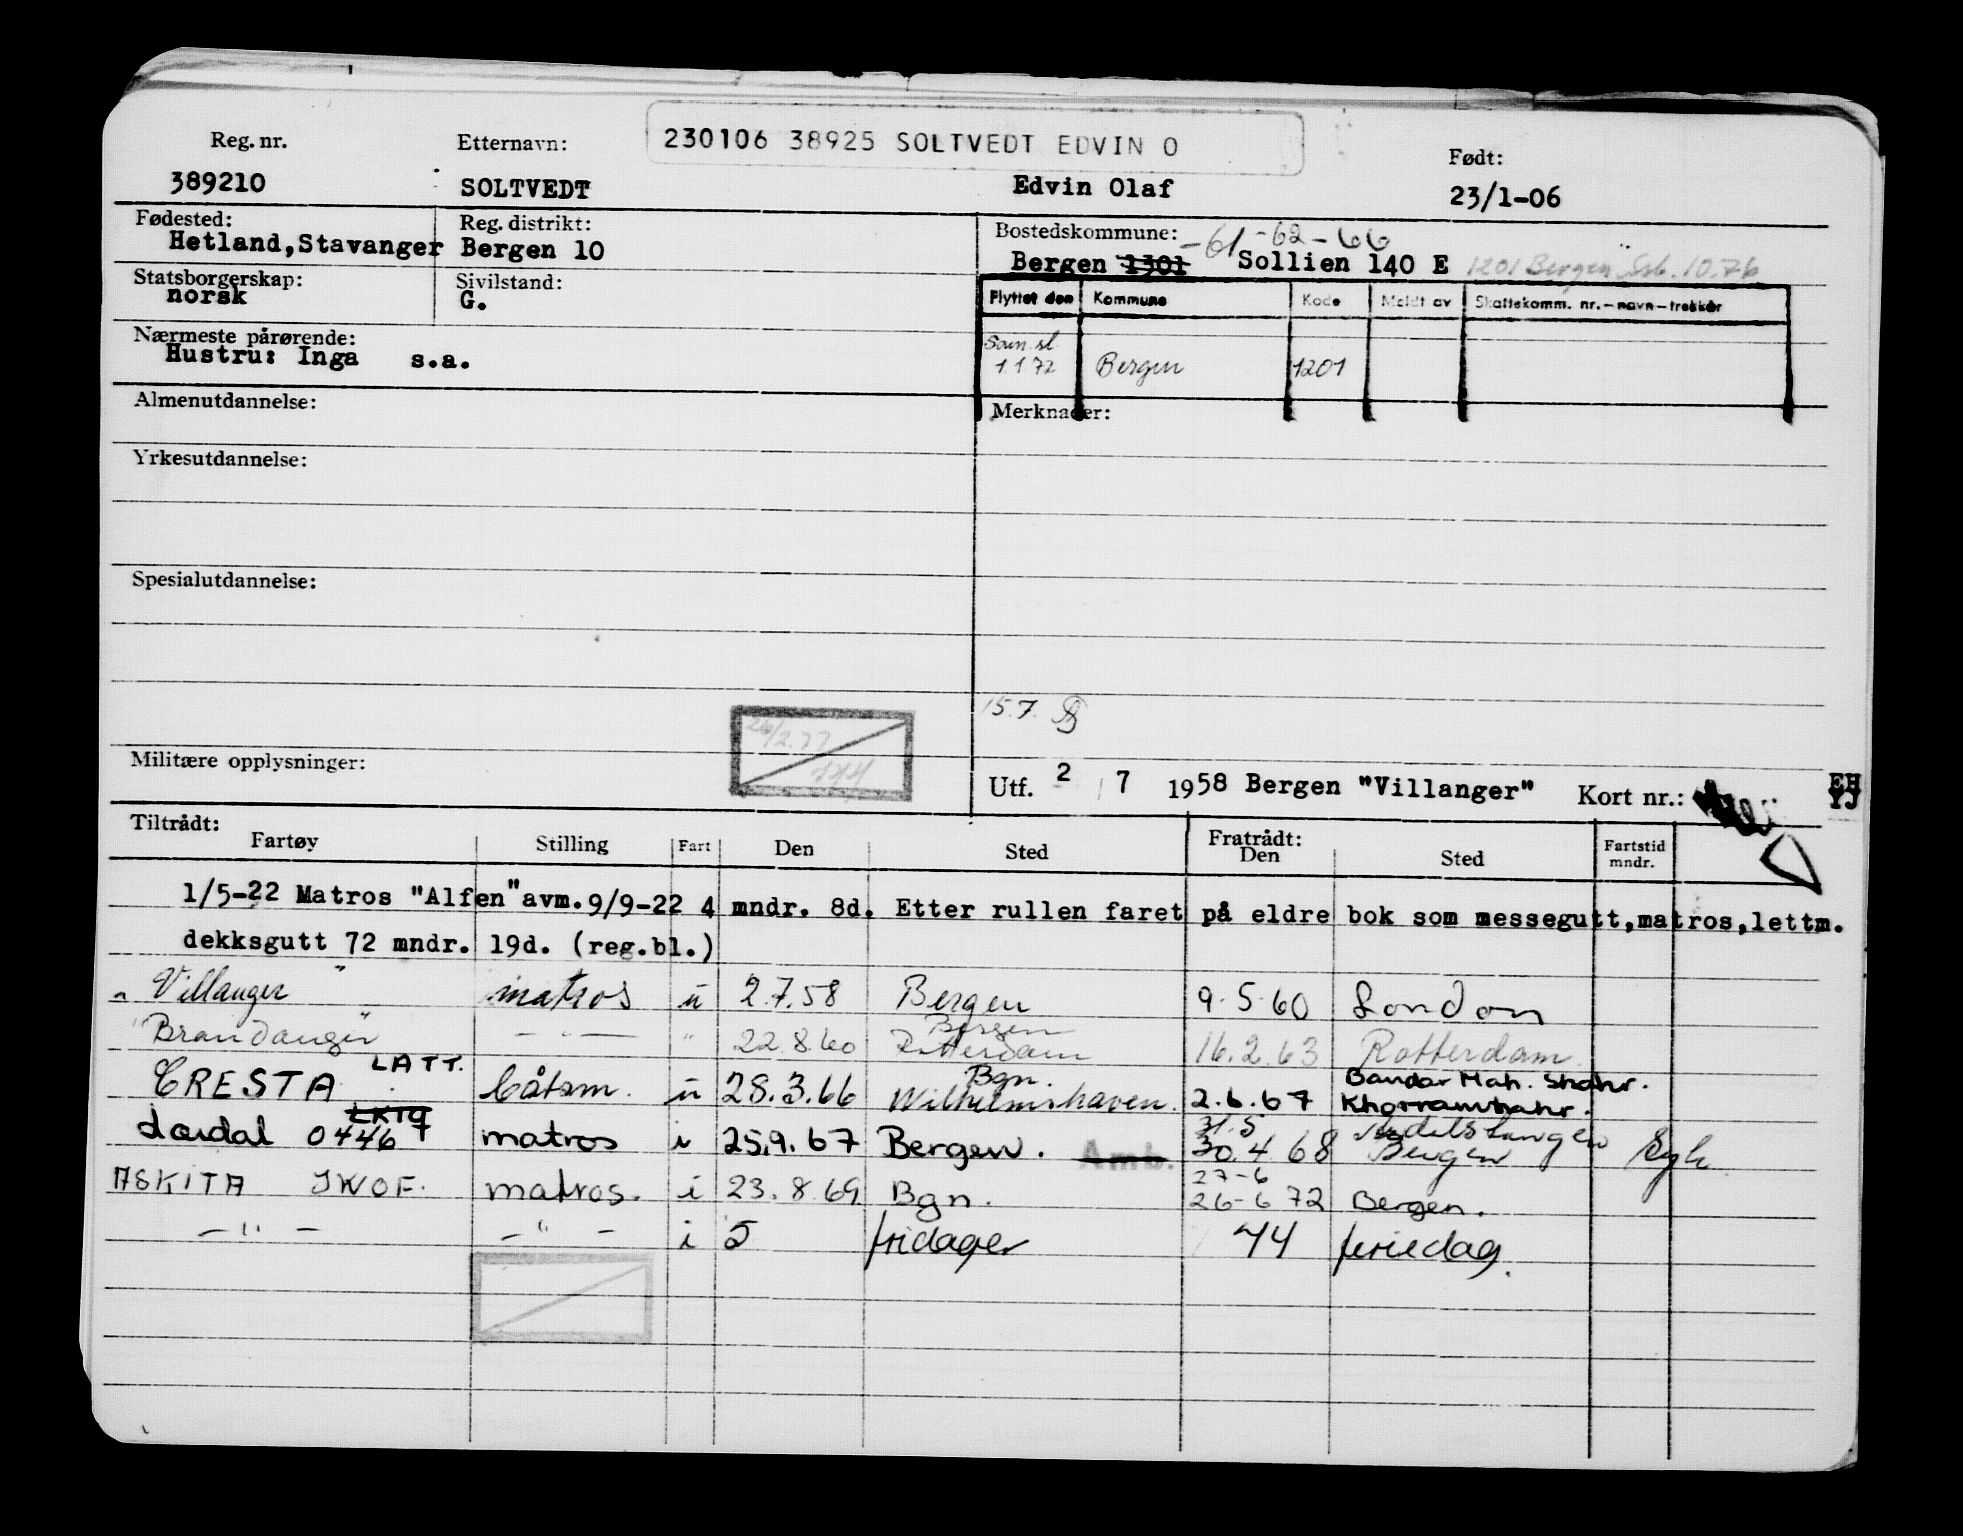 230106 38925 SOLTVEDT EDVIN O
Reg. nr. Etternavn: Født:
389210 SOLTVEDT Edvin Olaf 23/1-06
Fødested: Reg. distrikt: Bostedskommune: -61 -62 -66
Hetland,Stavanger Bergen 10 Bergen 1301 Sollien 140 E 1201 Bergen Ssb. 10.76
Statsborgerskap: Sivilstand:
norsk G.
Flyttet den Kommune Kode Meldt av Skattekomm. nr.-navn-trekkår
Nærmeste pårørende:
Hustru: Inga s.a.
Sam.sl
1.1 72 Bergen 1201
Almenutdannelse: Merknader:
Yrkesutdannelse:
Spesialutdannelse:
15.7.
Militære opplysninger:
Utf. 2 7 1958 Bergen "Villanger" Kort nr.: EH
YJ
Tiltrådt: Fratrådt:
Fartøy Stilling Fart Den Sted Den Sted Fartstid mndr.
1/5-22 Matros "Alfen" avm. 9/9-22 4 mndr. 8d. Etter rullen faret på eldre bok som messegutt,matros,lettm.
dekksgutt 72 mndr. 19d. (reg.bl.)
" Villanger " matros u 2.7.58 Bergen 9.5.60 London
Bergen
"Brandanger" - " - " 22.8.60 Rotterdam 16.2.63 Rotterdam
LATT. Bgn. Bandar Mah. Shahr.
CRESTA båtsm. u 28.3.66 Wilhelmshaven. 2.6.67 Khorramshahr.
LKTQ 31.5
Lærdal 04467 matros i 25.9.67 Bergen. Amb. 30.4.68 Bergen Syk
27-6
ASKITA JWOF. matros. i 23.8.69 Bgn. 26-6 72 Bergen.
- " - - " - i 5 fridager 44 feriedag.